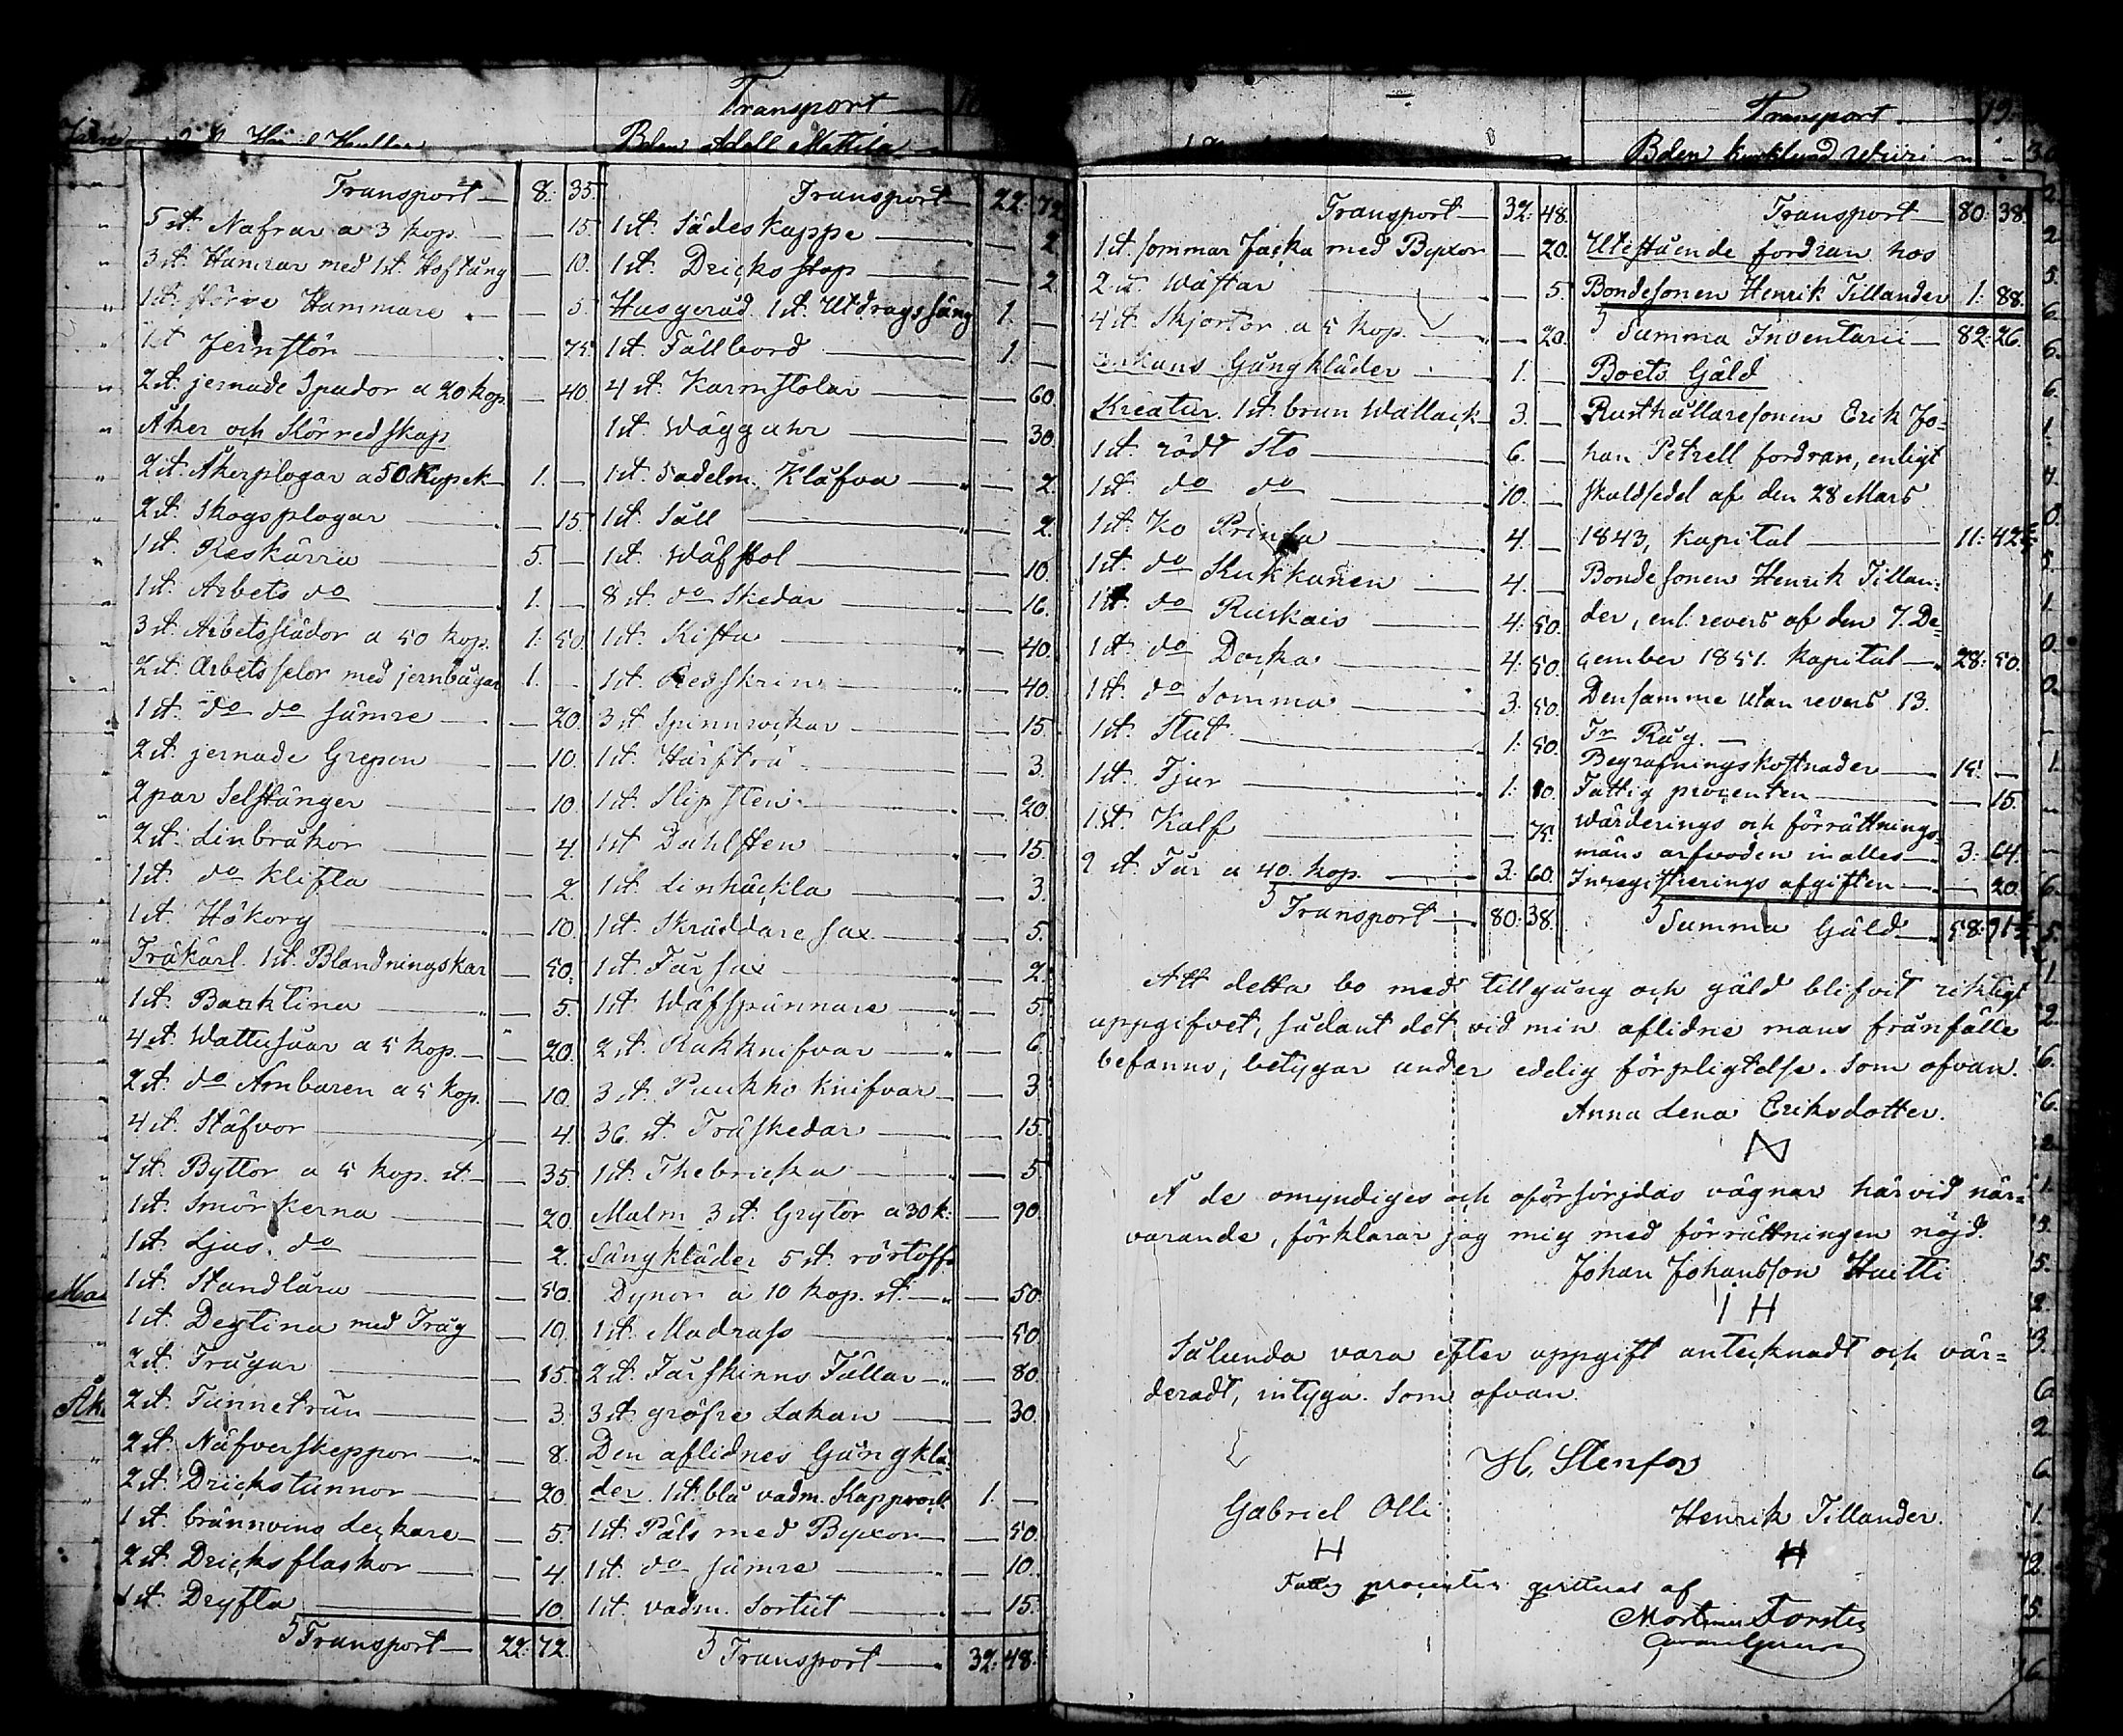 Transport
Bden Adell Mattila
Transport
Bden
Transport 8: 35.
5 st. Nafrar a 3 kop. — 15.
3 st. Hamrar med 1 st. Hoftång — 10.
1 st. större Hammare — 5.
1 st Jernstör — 75.
2 st. jernade Spador a 20 kop. — 40.
Åker och Körredskap
2 st. Åkerplogar a 50 Kopek 1. —
2 st. Skogsplogar — 15.
1 st. Reskärra 5. —
1 st. Arbets do 1. —
3 st. Arbetsslädor a 50 kop. 1: 50.
2 st. Arbetsselor med jernbågar 1. —
1 st. do do sämre — 20.
2 st. jernade Grepen — 10.
2 par Selstänger — 10.
2 st. Linbråkor — 4.
1 st. do klifta — 2.
1 st. Hökorg — 10.
Träkärl. 1 st. Blandningskar — 50.
1 st. Baaktina — 5.
4 st. Wattusåar a 5 kop. — 20.
2 st. do Ämbaren a 5 kop. — 10.
4 st. Stäfvor — 4.
7 st. Byttor a 5 kop. st. — 35.
1 st. Smör kerna — 20.
1 st. Ljus do — 2.
1 st. Standlåra — 50.
1 st. Degtina med Tråg — 10.
2 st. Trågar — 15.
2 st. Tunnetrån — 3.
2 st. Näfverskeppor — 8.
2 st. Drickstunnor — 20.
1 st. brännvins Legkare — 5.
2 st. Dricksflaskor — 4.
1 st. Dryfta — 10.
Transport 22: 72.
Transport 22: 72
1 st. Sädeskappe — 2.
1 st. Dricks stop — 2
Husgeråd 1 st. Utdragssäng 1. —
1 st. Fällbord 1. —
4 st. Karmstolar — 60.
1 st. Wägguhr — 30.
1 st. Sadelm. Klafva — 2.
1 st. Såll — 2.
1 st. Wäfstol — 10.
8 st. do Skedar — 16.
1 st. Kista — 40.
1 st. Resskrin — 40.
3 st. Spinnrockar — 15.
1 st. Härfträ — 3.
1 st. Slipsten — 20.
1 st Dahlsten — 15.
1 st. Linhäckla — 3.
1 st. Skräddare sax — 5.
1 st. Fårsax — 2.
1 st. Wäfspännare — 5.
2 st. Rakknifvar — 6.
3 st. Puukko knifvar — 3
36 st. Träskedar — 15.
1 st. Thebricka — 5
Malm 3 st. Grytor a 30 k. — 90.
Sängkläder 5 st. rörtofs
Dynor a 10 kop. st — 50.
1 st. Madrass — 50
2 st. Fårskinns Fällar — 80.
3 st. gröfre Lakan — 30.
Den aflidnes Gångklä-
der. 1 st. blå vadm. Kapprock 1. —
1 st. Päls med Byxor — 50.
1 st. do sämre — 10.
1 st. vadm. Sortut — 15.
Transport 32: 48.
Transport 32: 48.
1 st. sommar Jacka med Byxor — 20.
2 st Wästar — 5.
4 st. Skjortor a 5 kop. — 20.
Enkans Gångkläder 1. —
Kreatur. 1 st. brun Wallack 3. —
1 st. rödt Sto 6. —
1 st. do do 10. —
1 st. Ko Prinsa 4. —
1 st. do Kukkanen 4. —
1 st. do Ruskais 4: 50.
1 st. do Docka 4: 50.
1 st. do Somma 3: 50.
1 st. Stut 1: 50.
1 st. Tjur 1: 10.
1 st. Kalf — 75.
9 st. Får a 40. kop. 3: 60.
Transport 80: 38.
Transport 80: 38.
Utestående fordran hos
Bondesonen Henrik Tillander 1: 88.
Summa Inventarii 82: 26.
Boets Gäld
Rusthållaresonen Erik Jo-
han Petrell fordran, enligt
skuldsedel af den 28 Mars
1843, kapital 11: 42
Bondesonen Henrik Tillan-
der, enl. revers af den 7. De-
cember 1851. kapital 28: 50.
Densamme utan revers 13.
Tr Råg. —
Begrafningskostnader 15. —
Fattig procenten — 15.
Wärderings och förrättnings-
mäns arfvoden inalles 3: 64.
Inregistrerings afgiften — 20.
Summa Gäld 58: 91
Att detta bo med tillgång och gäld blifvit riktigt
uppgifvet, sådant det vid min aflidne mans frånfälle
befanns, betygar under edelig förpligtelse. Som ofvan.
Anna Lena Eriksdotter.
Å de omyndiges och oförsörjdas vägnar härvid när-
varande, förklarar jag mig med förrättningen nöjd.
Johan Johansson Huitti
I H
Sålunda vara efter uppgift antecknadt och vär-
deradt, intyga. Som ofvan.
H. Stenfors
Gabriel Olli Henrik Tillander.
H H
Fattig procenten qvitteras af